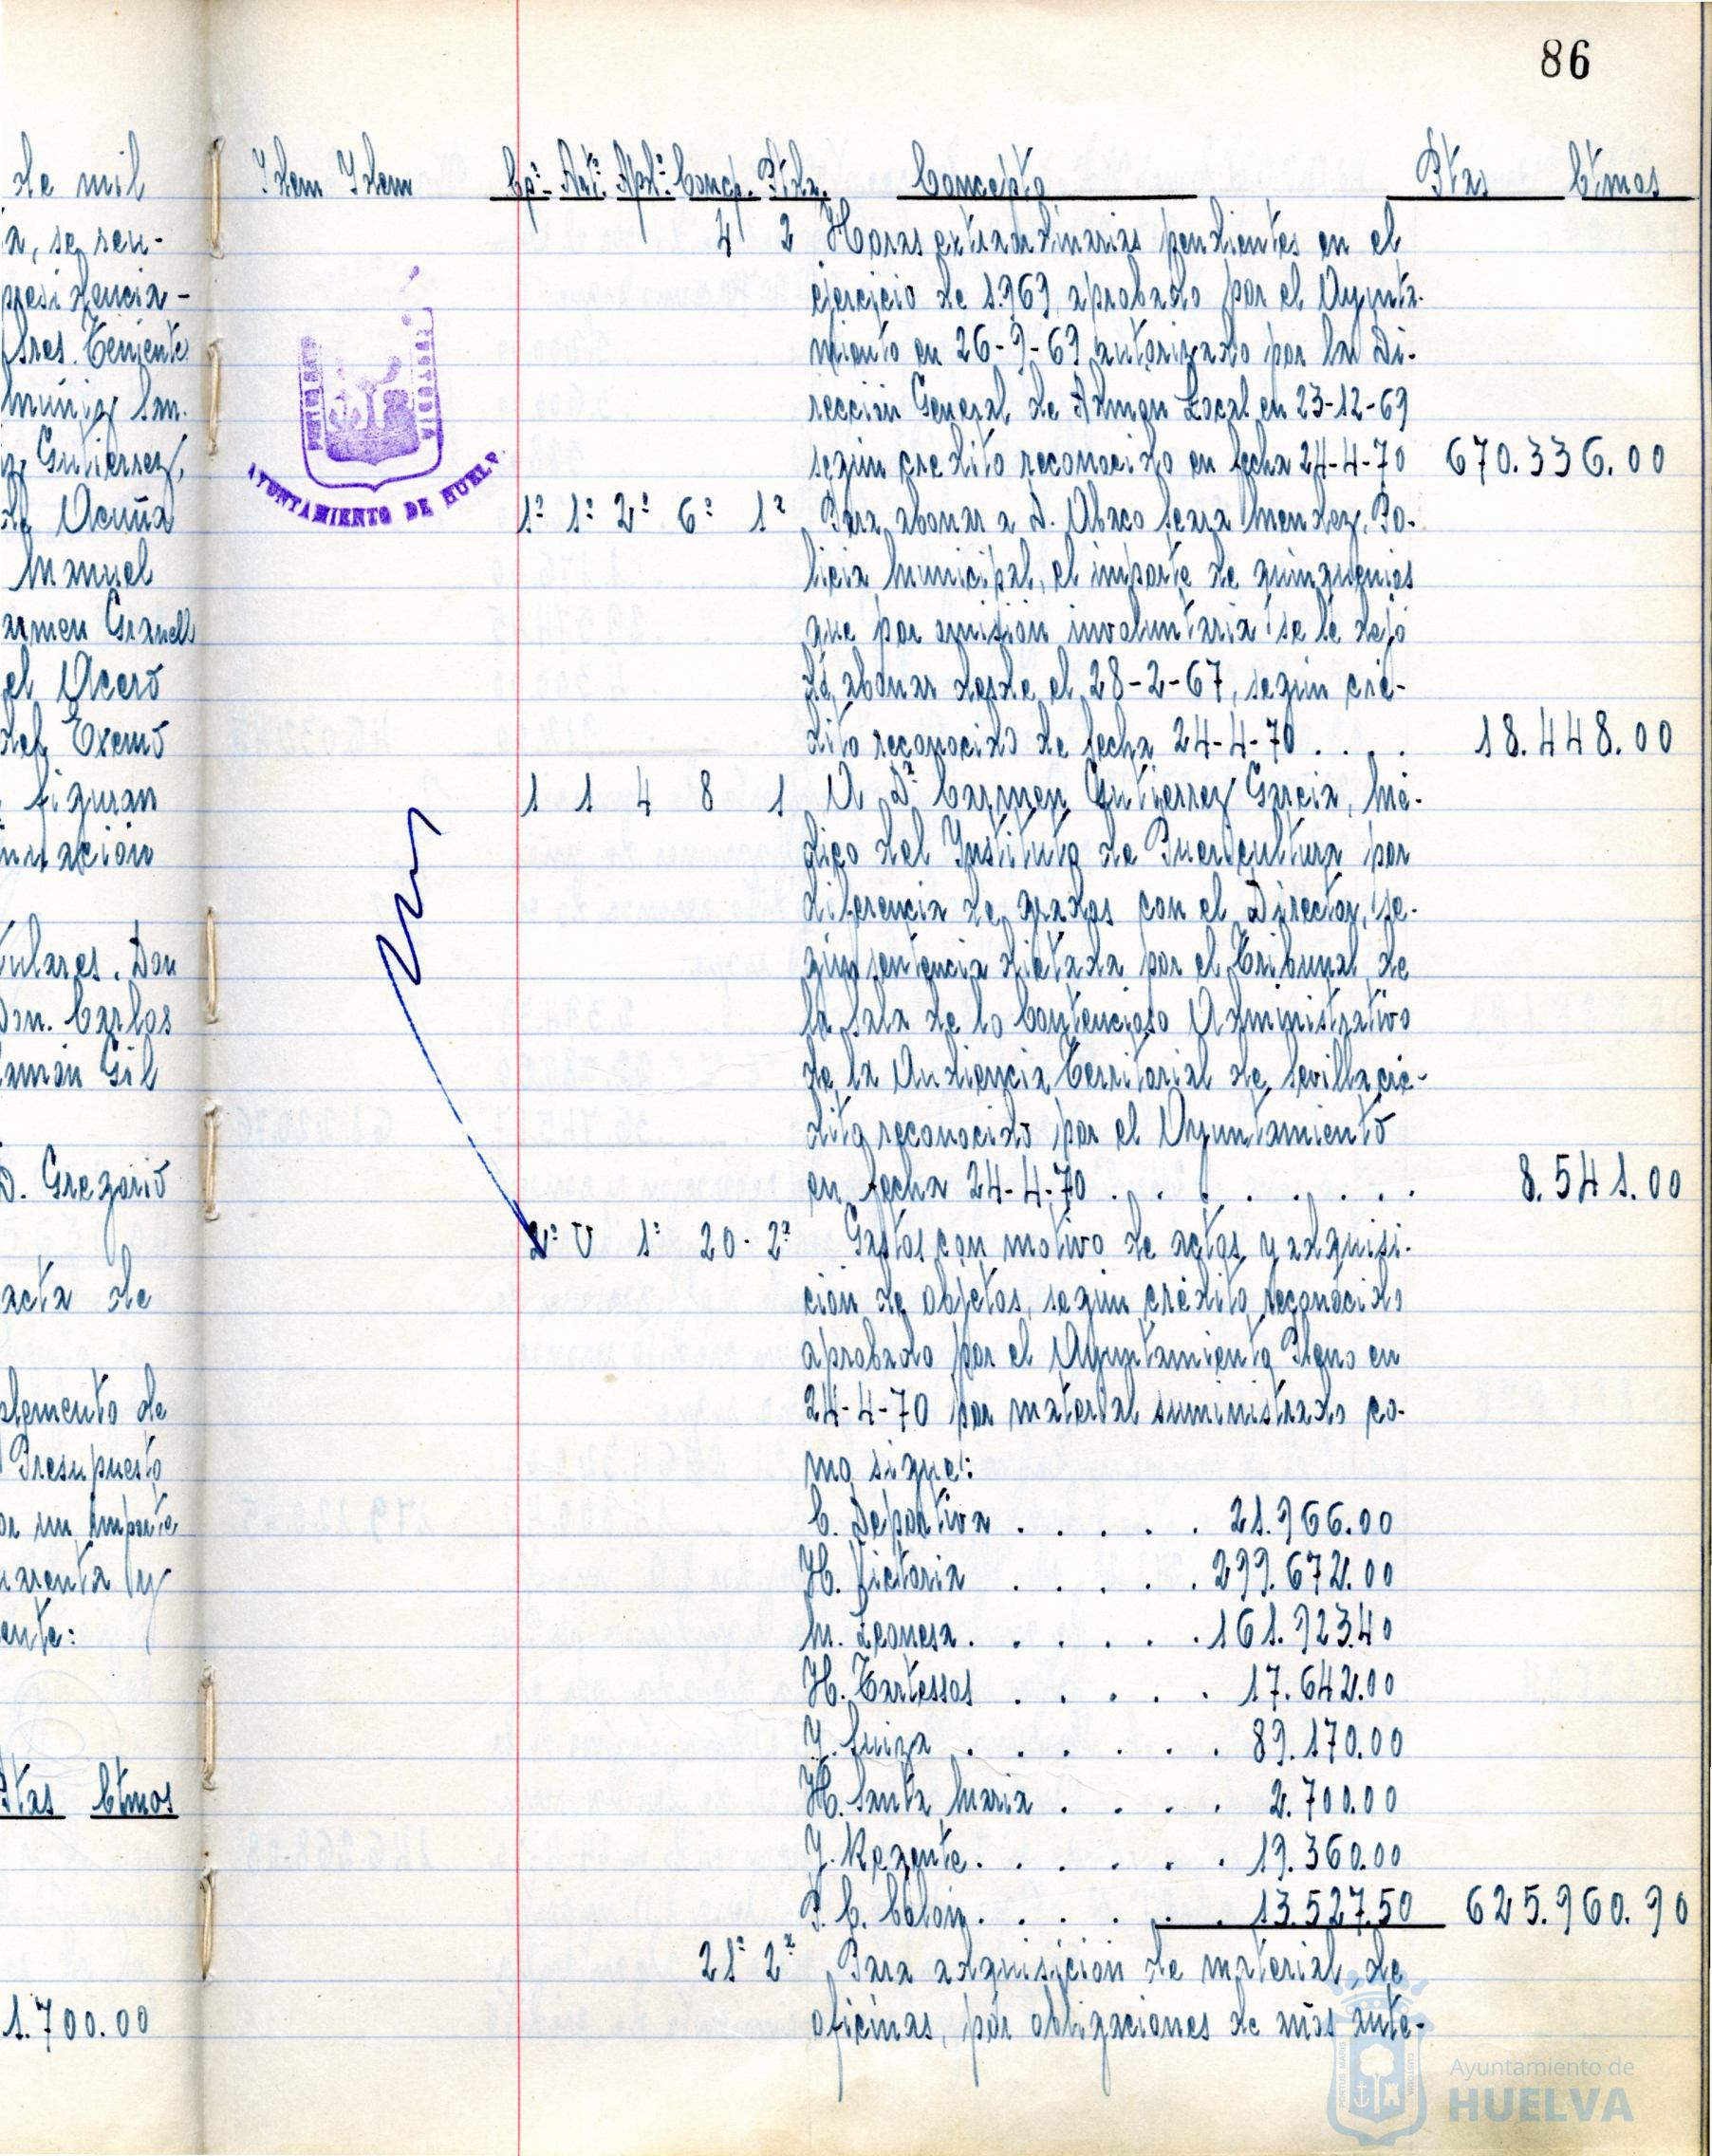 86
de mil
a, se reu-
presidencia-
Sres. Teniente
Muñiz San.
z Gutierrez,
de Acuña
Manuel
armen Granell
el Acero
del Excmo
figuran
nuación
tulares. Don
Don. Carlos
amón Gil
D. Gregorio
acta de
plemento de
Presupuesto
or un importe
uarenta y
ente:
Ptas Ctmos
1.700.00
Idem Idem Cp:- Art: Apt: Concp. Ptda. Concepto Ptas Ctmos
4 2 Horas extraordinarias pendientes en el
ejercicio de 1.969, aprobado por el Ayunta-
miento en 26-9-69 autorizado por la Di-
rección General de Admon Local en 23-12-69
según credito reconocido en fecha 24-4-70 670.336.00
1º 1º 2º 6º 1ª Para abonar a D. Abaco Seara Mendez, Po-
licia Municipal, el importe de quinquenios
que por omisión involuntaria se le dejó
de abonar desde el 28-2-67, según cré-
dito reconocido de fecha 24-4-70 . . . . 18.448.00
1 1 4 8 1 A Dª Carmen Gutierrez Garcia, Mé-
dico del Instituto de Puericultura por
diferencia de grados con el Director, se-
gún sentencia dictada por el Tribunal de
la Sala de lo Contencioso Administrativo
de la Audiencia Territorial de Sevilla cré-
dito reconocido por el Ayuntamiento
en fecha 24-4-70 . . . . . . . 8.541.00
2º U 1º 20. 2ª Gastos con motivo de actos y adquisi-
cion de objetos, según crédito reconocido
aprobado por el Ayuntamiento Pleno en
24-4-70 por material suministrado co-
mo sigue:
C. Deportiva . . . . . 21.966.00
H. Victoria . . . . . 299.672.00
M. Leonesa . . . . . . 161.923.40
H. Tartessos . . . . . 17.642.00
J. Suiza . . . . . . 89.170.00
H. Santa Maria . . . . 2.700.00
J. Regente . . . . . . 19.360.00
P. C. Colón . . . . . . 13.527.50 625.960.90
21º 2ª Para adquisición de material de
oficinas, por obligaciones de años ante-
AYUNTAMIENTO DE HUELV.
Ayuntamiento de
HUELVA